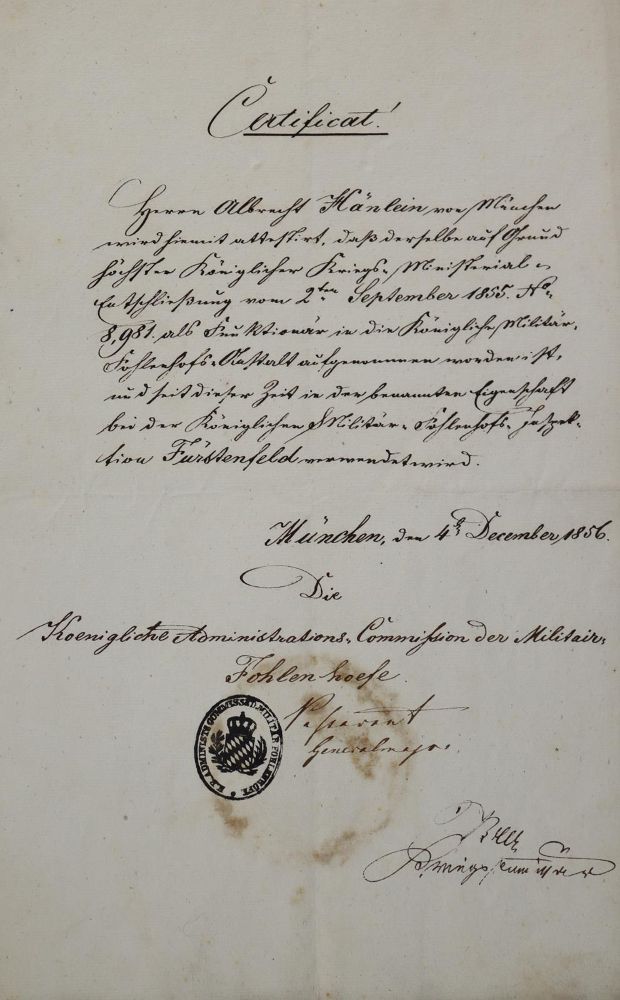 Certificat!
Herrn Albrecht Hänlein von München
wird hiemit attestirt, daß derselbe auf Grund
höchster Königlicher Kriegs-Ministerial-
Entschließung vom 2ten September 1855. No.
8,981. als Funktionär in die Königliche Militär-
Fohlenhofs-Anstalt aufgenommen worden ist,
und seit dieser Zeit in der benannten Eigenschaft
bei der Königlichen Militär-Fohlenhofs-Inspek-
tion Fürstenfeld verwendet wird.
München, den 4t December 1856.
Die
Koenigliche Administrations-Commission der Militair-
Fohlenhoefe.
Generalmajor.